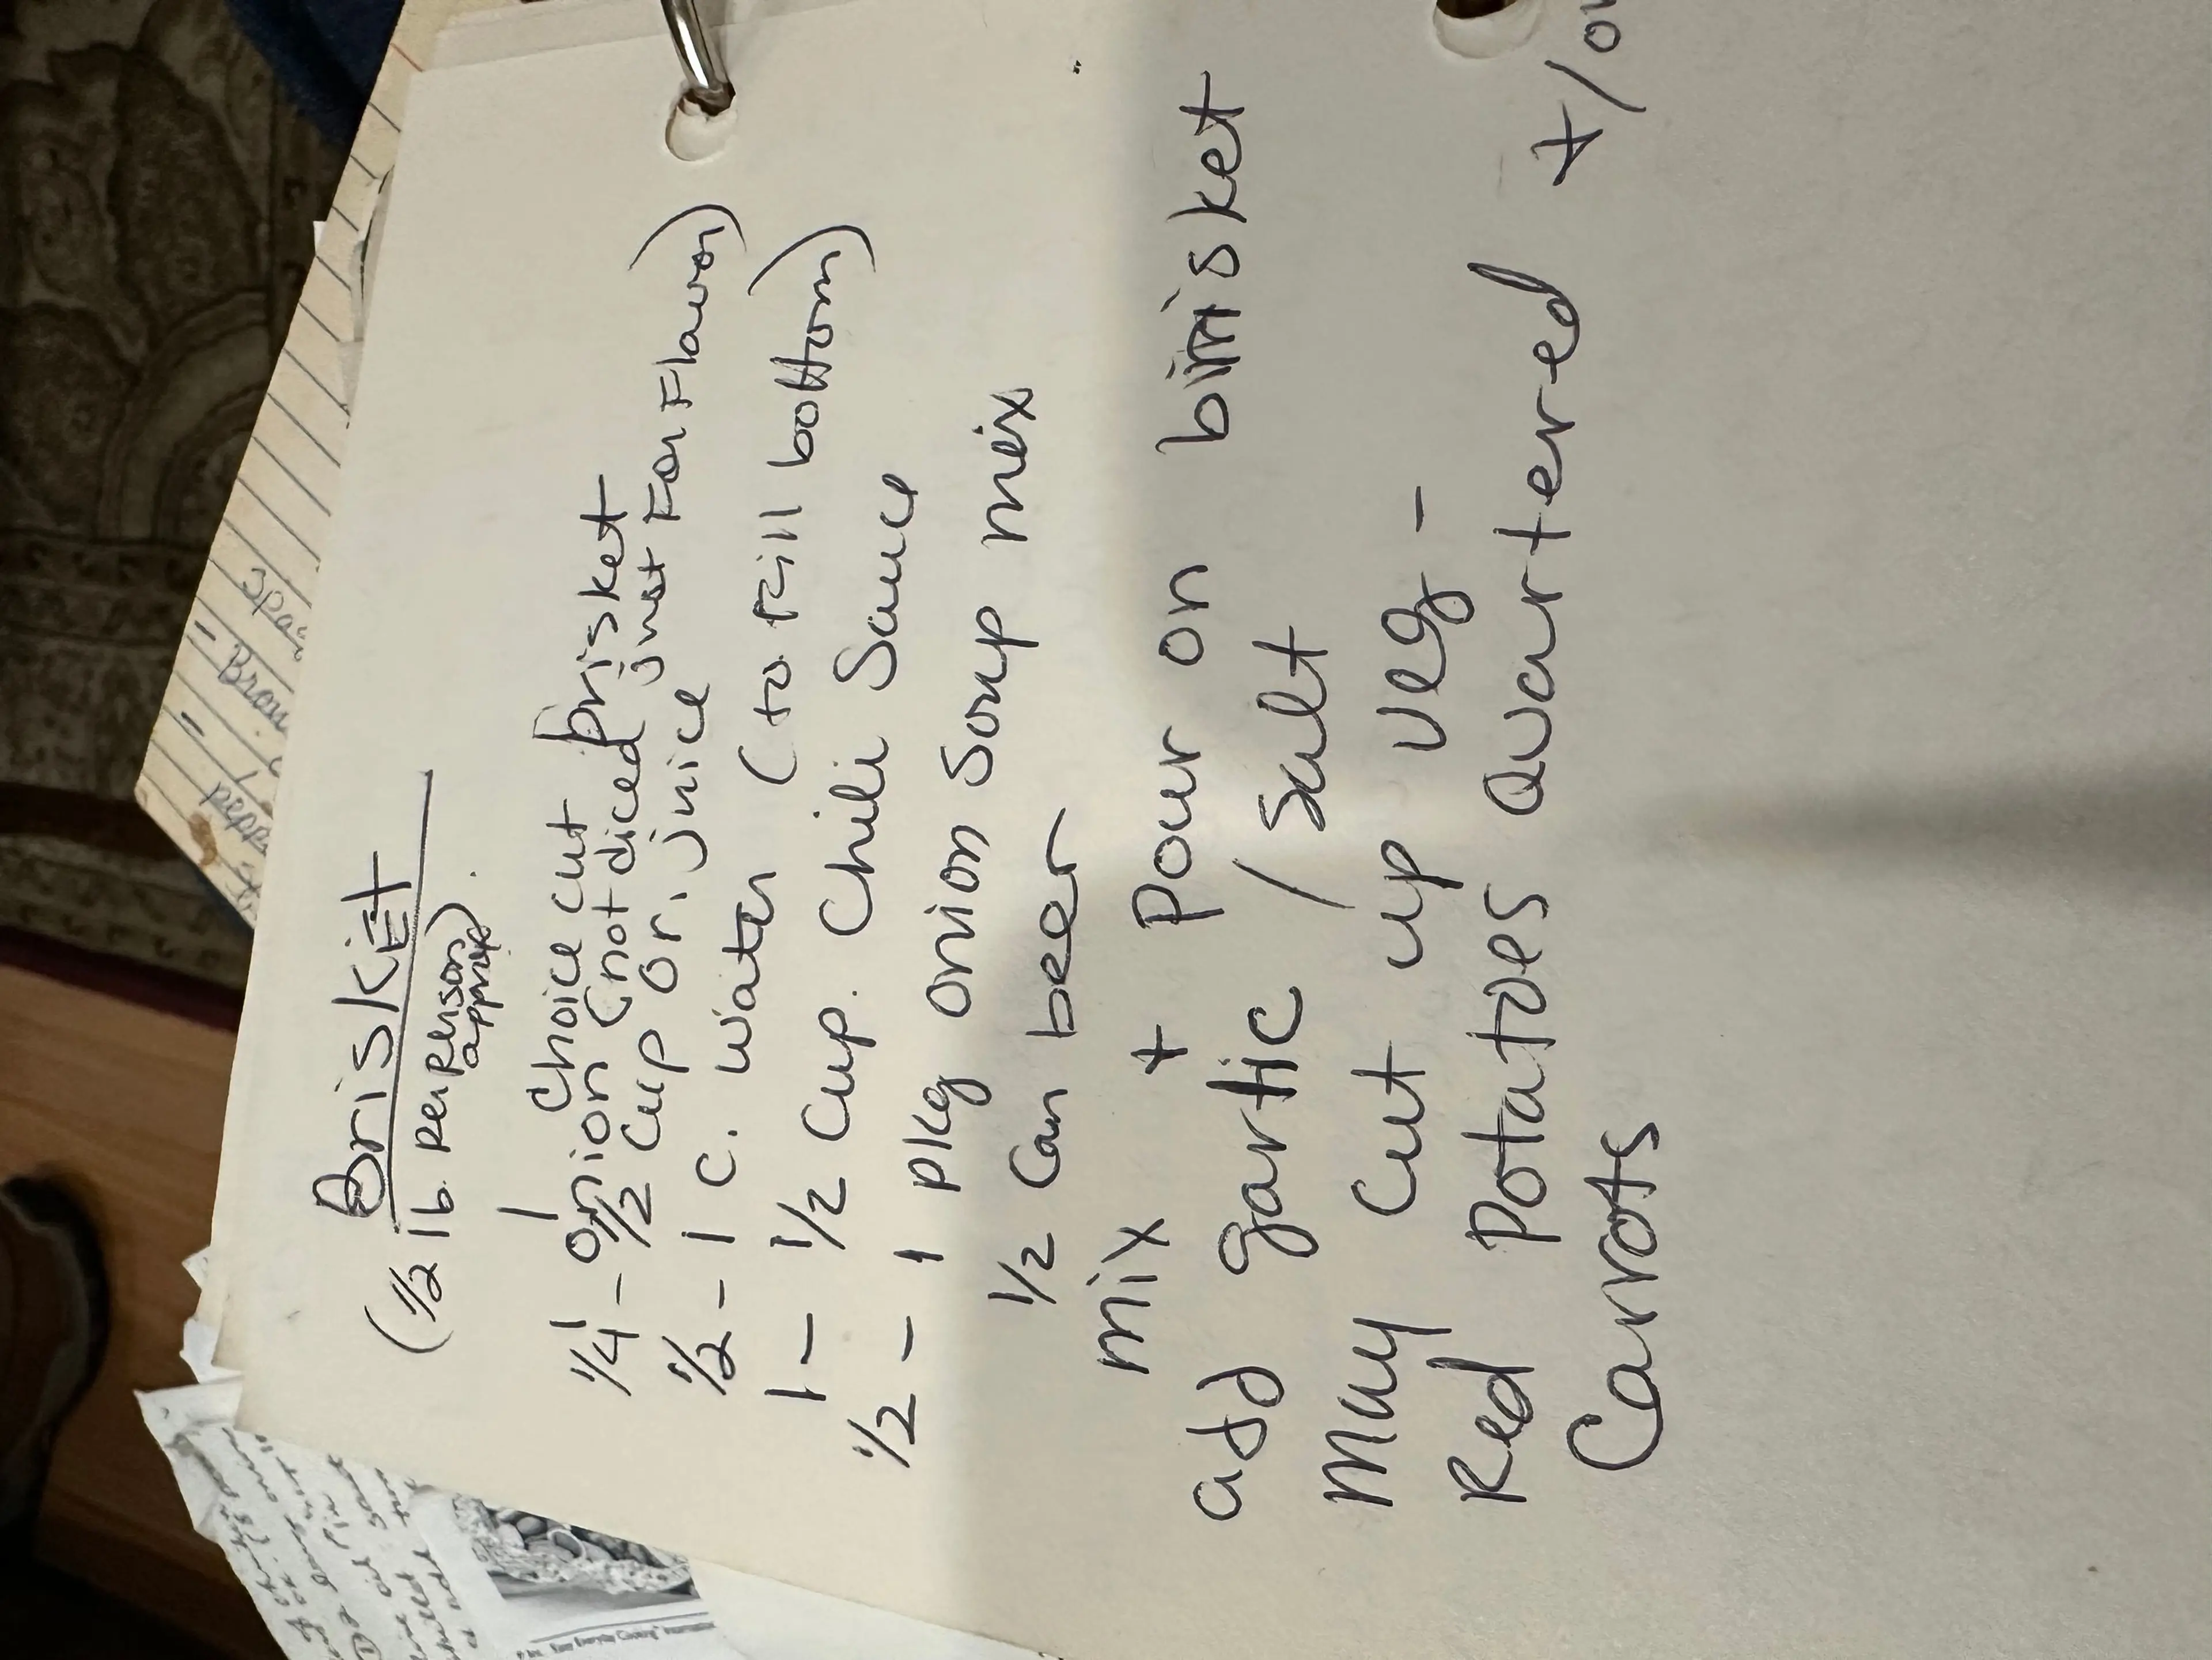 Brisket
(1/2 lb. per person)
approx
1 Choice cut brisket
1/4 - onion (not diced just For Flavor)
1/2 - 1/2 cup or. juice
1 - 1 c. water (to fill bottom)
1/2 - 1/2 cup. Chili Sauce
1 pkg onion soup mix
1/2 can beer
mix + pour on brisket
add garlic / salt
May cut up veg -
Red Potatoes Quartered +/or
Carrots
- Spa
- Brow
pepp